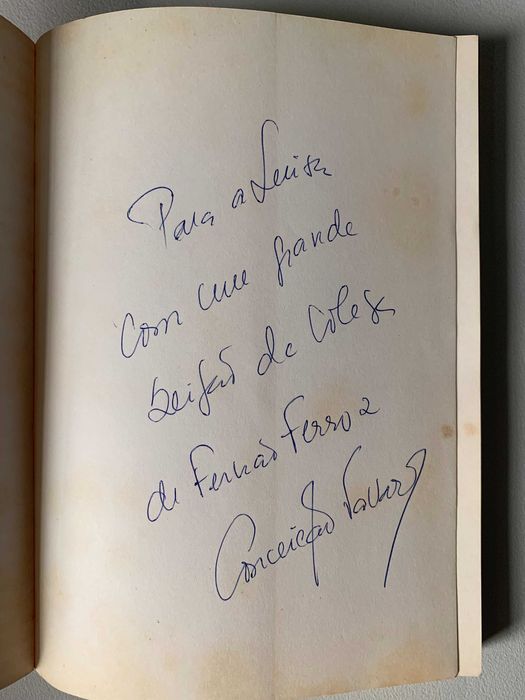 Para a Luisa
com um grande
beijão da colega
de Fernão Ferro 2
Conceição Tavares